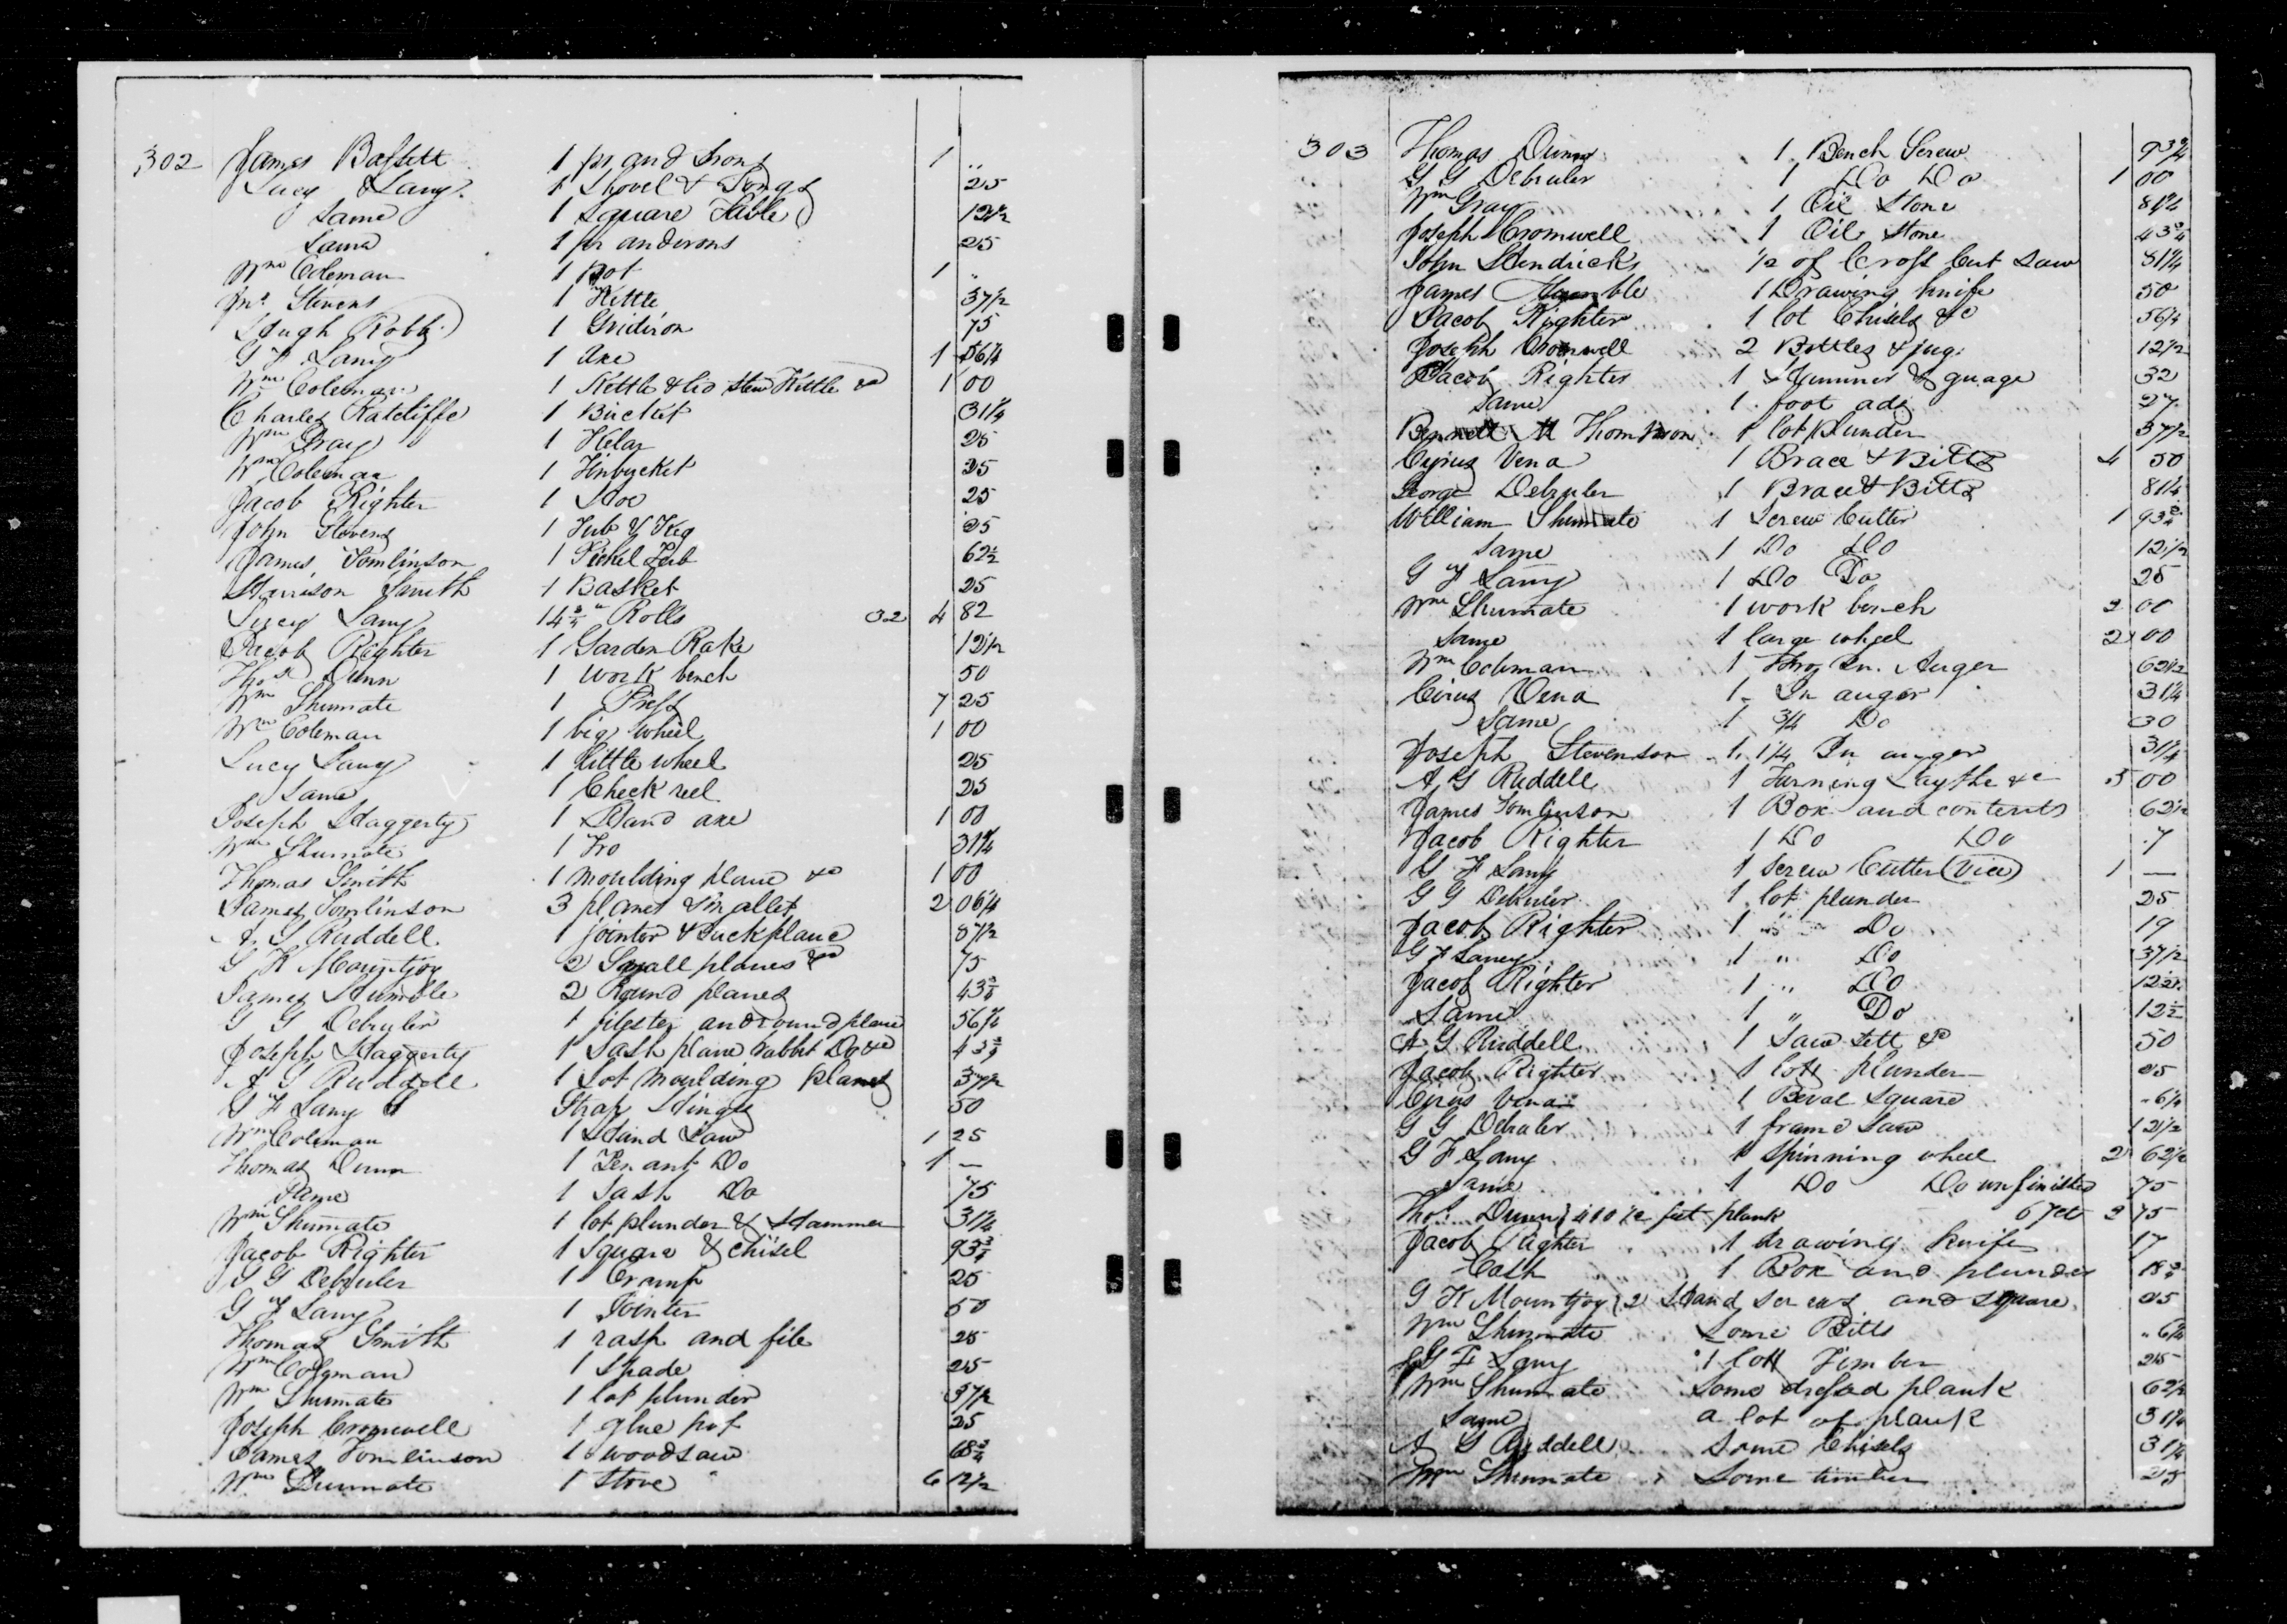 302 James Bassett 1 pr and Irons 1 ..
Lucy Lany 1 Shovel & Tongs 25
Same 1 square Table 12 1/2
Same 1 pr andirons 25
Wm Coleman 1 pot 1 ..
Jno Stevens 1 Kettle 37 1/2
Hugh Robb 1 Gridiron 75
G F Lany 1 axe 1 56 1/4
Wm Coleman 1 Kettle & lid stew Kettle &c 1 00
Charles Ratcliffe 1 Bucket 31 1/4
Wm Gray 1 Kelar 25
Wm Coleman 1 Tinbucket 25
Jacob Righter 1 Hoe 25
John Stevens 1 Tub & Keg 25
James Tomlinson 1 Pickel Tub 62 1/2
Harrison Smith 1 Basket 25
Lucy Lany 14 3/4 " Rolls 32 4 82
Jacob Righter 1 Garden Rake 12 1/2
Thos Dunn 1 work bench 50
Wm Shumate 1 Press 7 25
Wm Coleman 1 big wheel 1 00
Lucy Lany 1 little wheel 25
Same 1 Check reel 25
Joseph Haggerty 1 Hand axe 1 00
Wm Shumate 1 Fro 31 1/4
Thomas Smith 1 moulding plane &c 1 00
James Tomlinson 3 planes & mallet 2 06 1/4
A G Ruddell 1 jointer & Buckplane 37 1/2
G K Mountjoy 2 Small planes &c 75
James Humble 2 Round planes 43 3/4
G G Debruler 1 filester and round plane 56 1/4
Joseph Haggerty 1 Sash plane rabbit Do &c 43 3/4
A G Ruddell 1 Lot moulding planes 37 1/2
G F Lany Strap Hinges 50
Wm Coleman 1 Hand Saw 1 25
Thomas Dunn 1 Tenant Do 1 —
Same 1 Sash Do 75
Wm Shumate 1 lot plunder & Hammer 31 1/4
Jacob Righter 1 Square & chisel 93 3/4
G G Debruler 1 Cramp 25
G F Lany 1 Jointer 50
Thomas Smith 1 rasp and file 25
Wm Coleman 1 Spade 25
Wm Shumate 1 lot plunder 37 1/2
Joseph Cromwell 1 glue pot 25
James Tomlinson 1 woodsaw 68 3/4
Wm Shumate 1 Stove 6 12 1/2
303 Thomas Dunn 1 Bench Screw 93 3/4
G G Debruler 1 Do Do 1 00
Wm Gray 1 Oil Stone 81 1/4
Joseph Cromwell 1 Oil Stone 43 3/4
John Hendricks 1/2 of Cross Cut Saw 81 1/4
James Humble 1 Drawing knife 50
Jacob Righter 1 lot Chisels &c 56 1/4
Joseph Cromwell 2 Bottles & jug 12 1/2
Jacob Righter 1 Hammer & guage 32
Same 1 foot adz 27
Bennett M Thompson 1 lot plunder 37 1/2
Cyrus Vena 1 Brace & Bitts 4 50
George Debruler 1 Brace & Bitts 81 1/4
William Shumate 1 Screw Cutter 1 93 3/4
Same 1 Do Do 12 1/2
G F Lany 1 Do Do 25
Wm Shumate 1 work bench 2 00
Same 1 large wheel 2 00
Wm Coleman 1 In. Auger 62 1/2
Cirus Vena 1 In auger 31 1/4
Same 1 3/4 Do 30
Joseph Stevenson 1. 1 1/4 In auger 31 1/4
A G Ruddell 1 Turning Laythe &c 5 00
James Tomlinson 1 Box and contents 62 1/2
Jacob Righter 1 Do Do .7
G F Lany 1 Screw Cutter (Vice) 1 —
G G Debruler 1 lot plunder 25
Jacob Righter 1 " Do 19
G F Laney 1 " Do 37 1/2
Jacob Righter 1 " Do 12 1/2
Same 1 " Do 12 1/2
A G Ruddell 1 Saw sett &c 50
Jacob Righter 1 lott plunder 25
Cyrus Vena 1 Beval Square " 6 1/4
G G Debruler 1 frame Saw 12 1/2
G F Lany 1 Spinning wheel 2 62 1/2
Same 1 Do Do unfinished 75
Thos Dunn 400 1/2 feet plank 3 75
Jacob Righter 1 drawing knife 17
Cash 1 Box and plunder 18 3/4
G K Mountjoy 2 Hand screws and square 25
Wm Shumate Some Bitts " 6 1/4
G F Lany 1 lott Timber 25
Wm Shumate Some dressed plank 62 1/2
Same a lot of plank 31 1/4
A G Ruddell Some Chisels 31 1/4
Wm Shumate Some timber 25